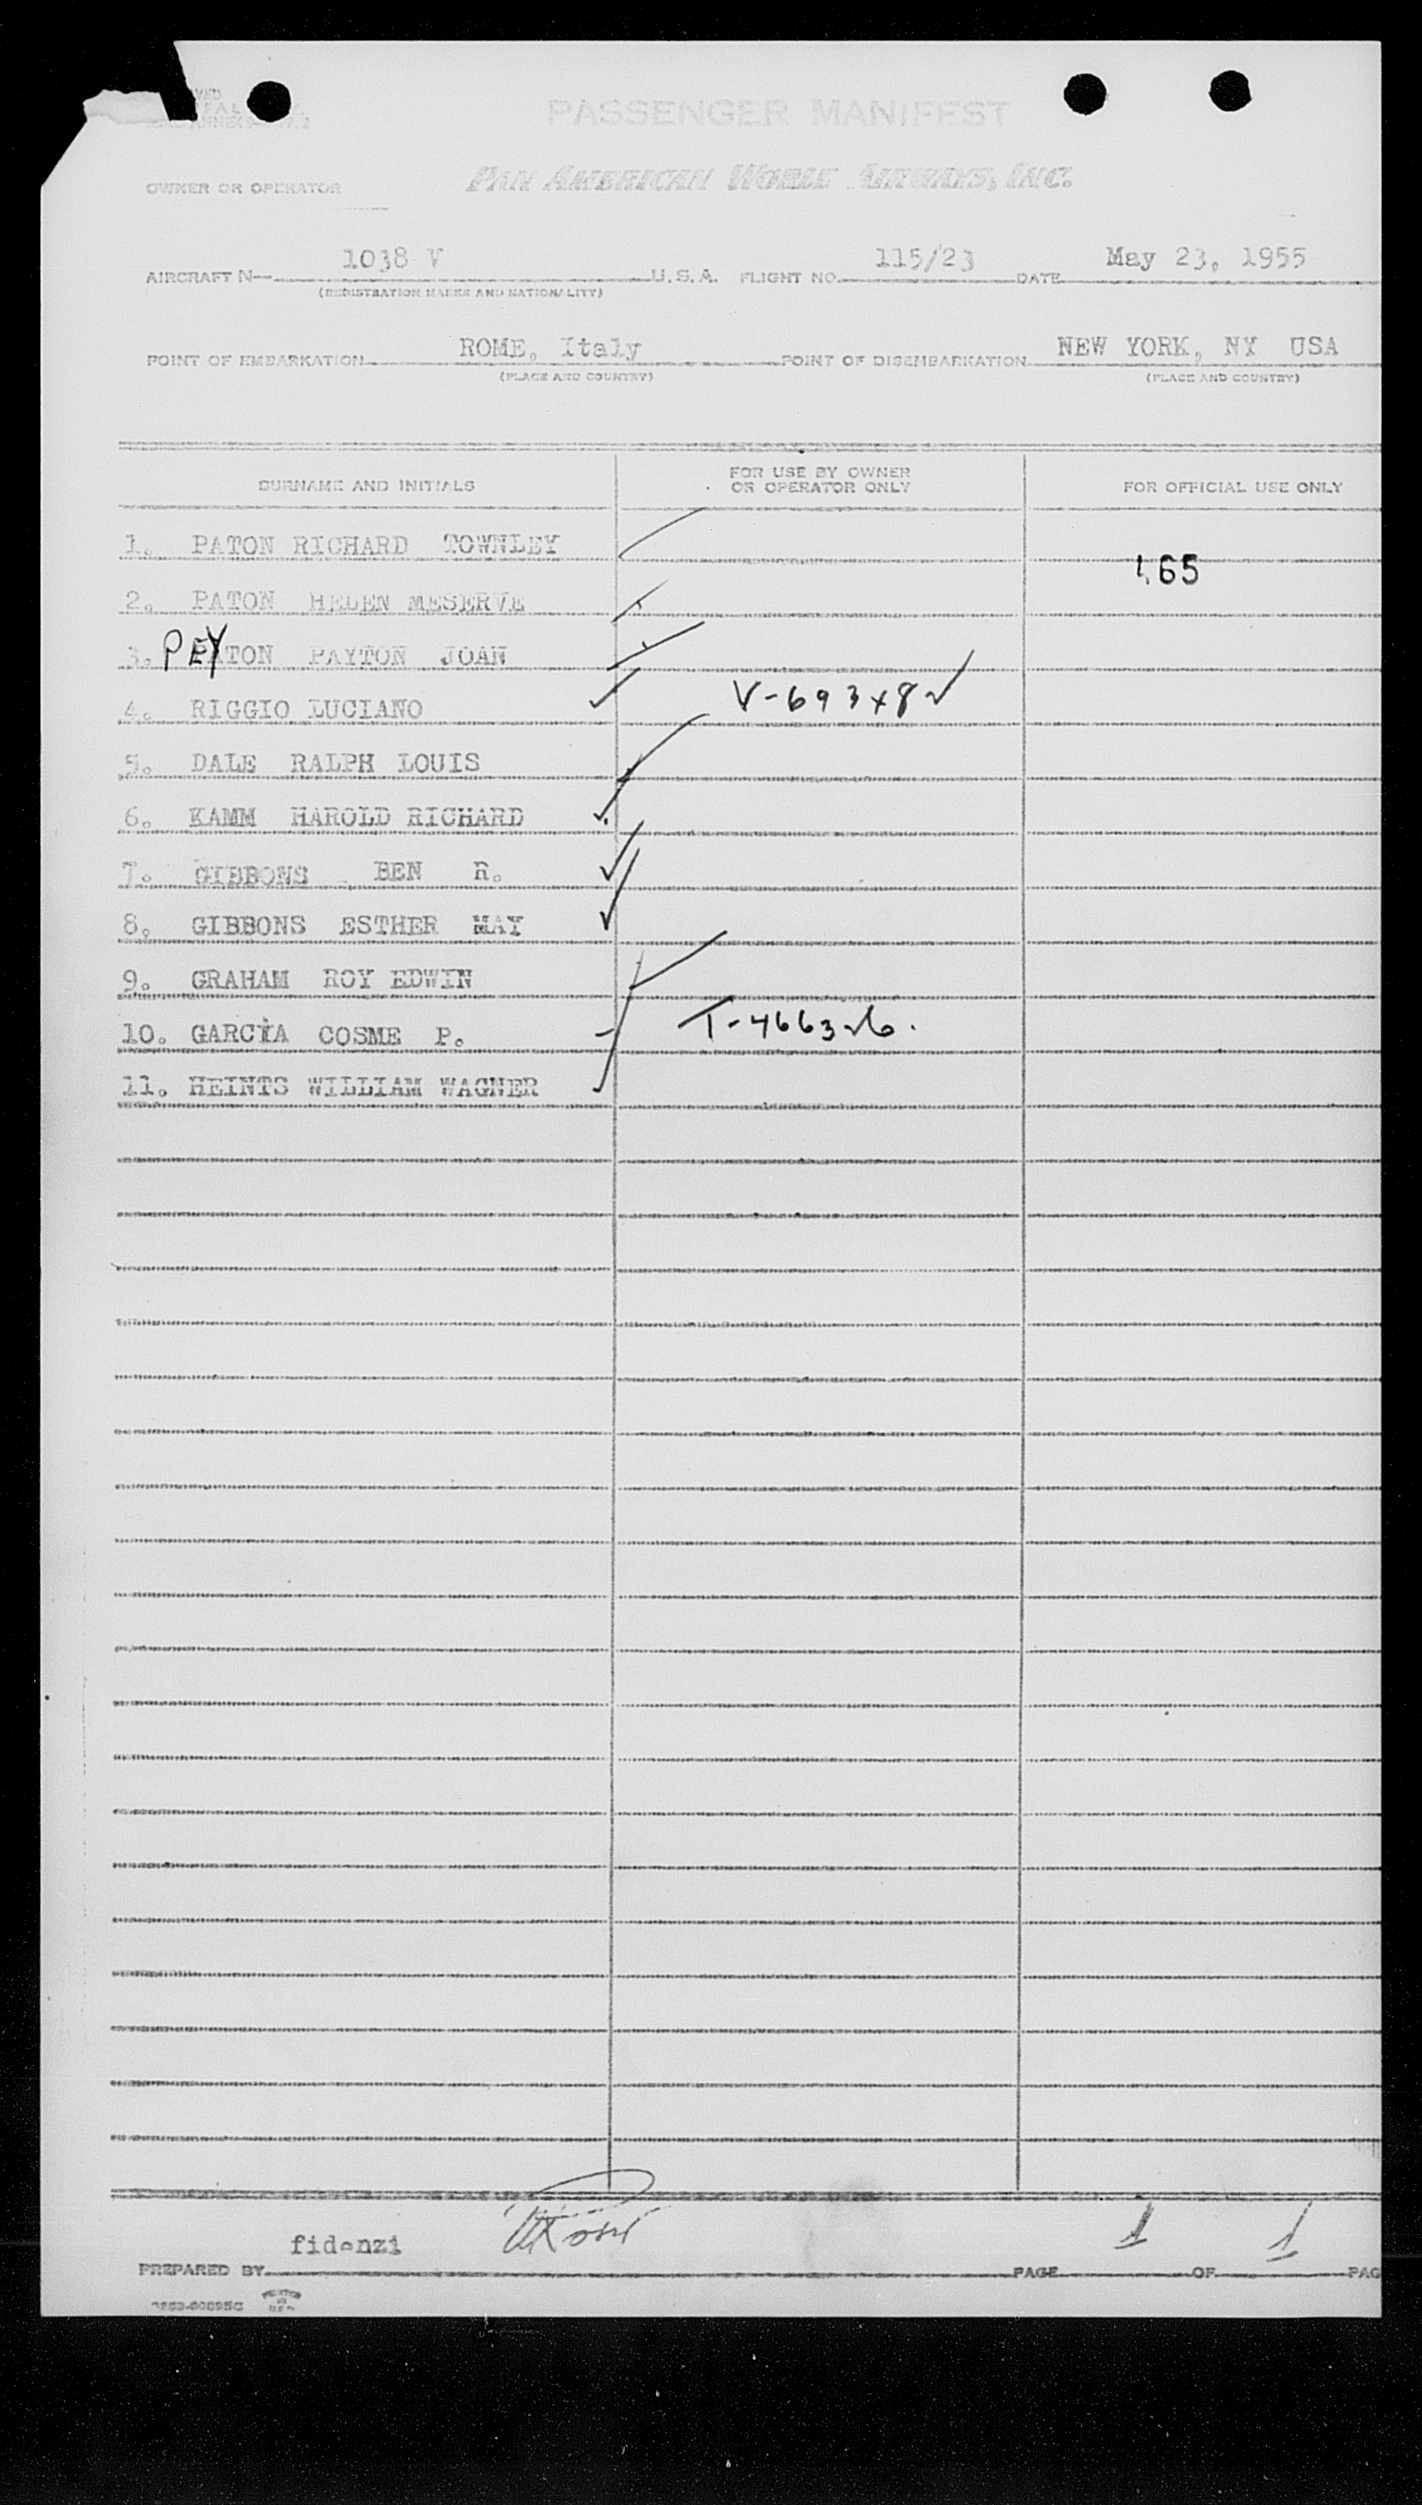 PASSENGER MANIFEST
PAN AMERICAN WORLD AIRWAYS, INC.
OWNER OR OPERATOR
AIRCRAFT N— 1038 V U.S.A. FLIGHT NO. 115/23 DATE May 23, 1955
(REGISTRATION MARKS AND NATIONALITY)
POINT OF EMBARKATION ROME, Italy POINT OF DISEMBARKATION NEW YORK, NY USA
(PLACE AND COUNTRY) (PLACE AND COUNTRY)
SURNAME AND INITIALS FOR USE BY OWNER OR OPERATOR ONLY FOR OFFICIAL USE ONLY
1. PATON RICHARD TOWNLEY
165
2. PATON HELEN MESERVE
3. PEYTON PAYTON JOAN
4. RIGGIO LUCIANO V-693x8 ✓
5. DALE RALPH LOUIS
6. KAMM HAROLD RICHARD
7. GIBBONS BEN R.
8. GIBBONS ESTHER MAY
9. GRAHAM ROY EDWIN
10. GARCIA COSME P. T-466326.
11. HEINTS WILLIAM WAGNER
fidenzi
PREPARED BY PAGE 1 OF 1 PAG